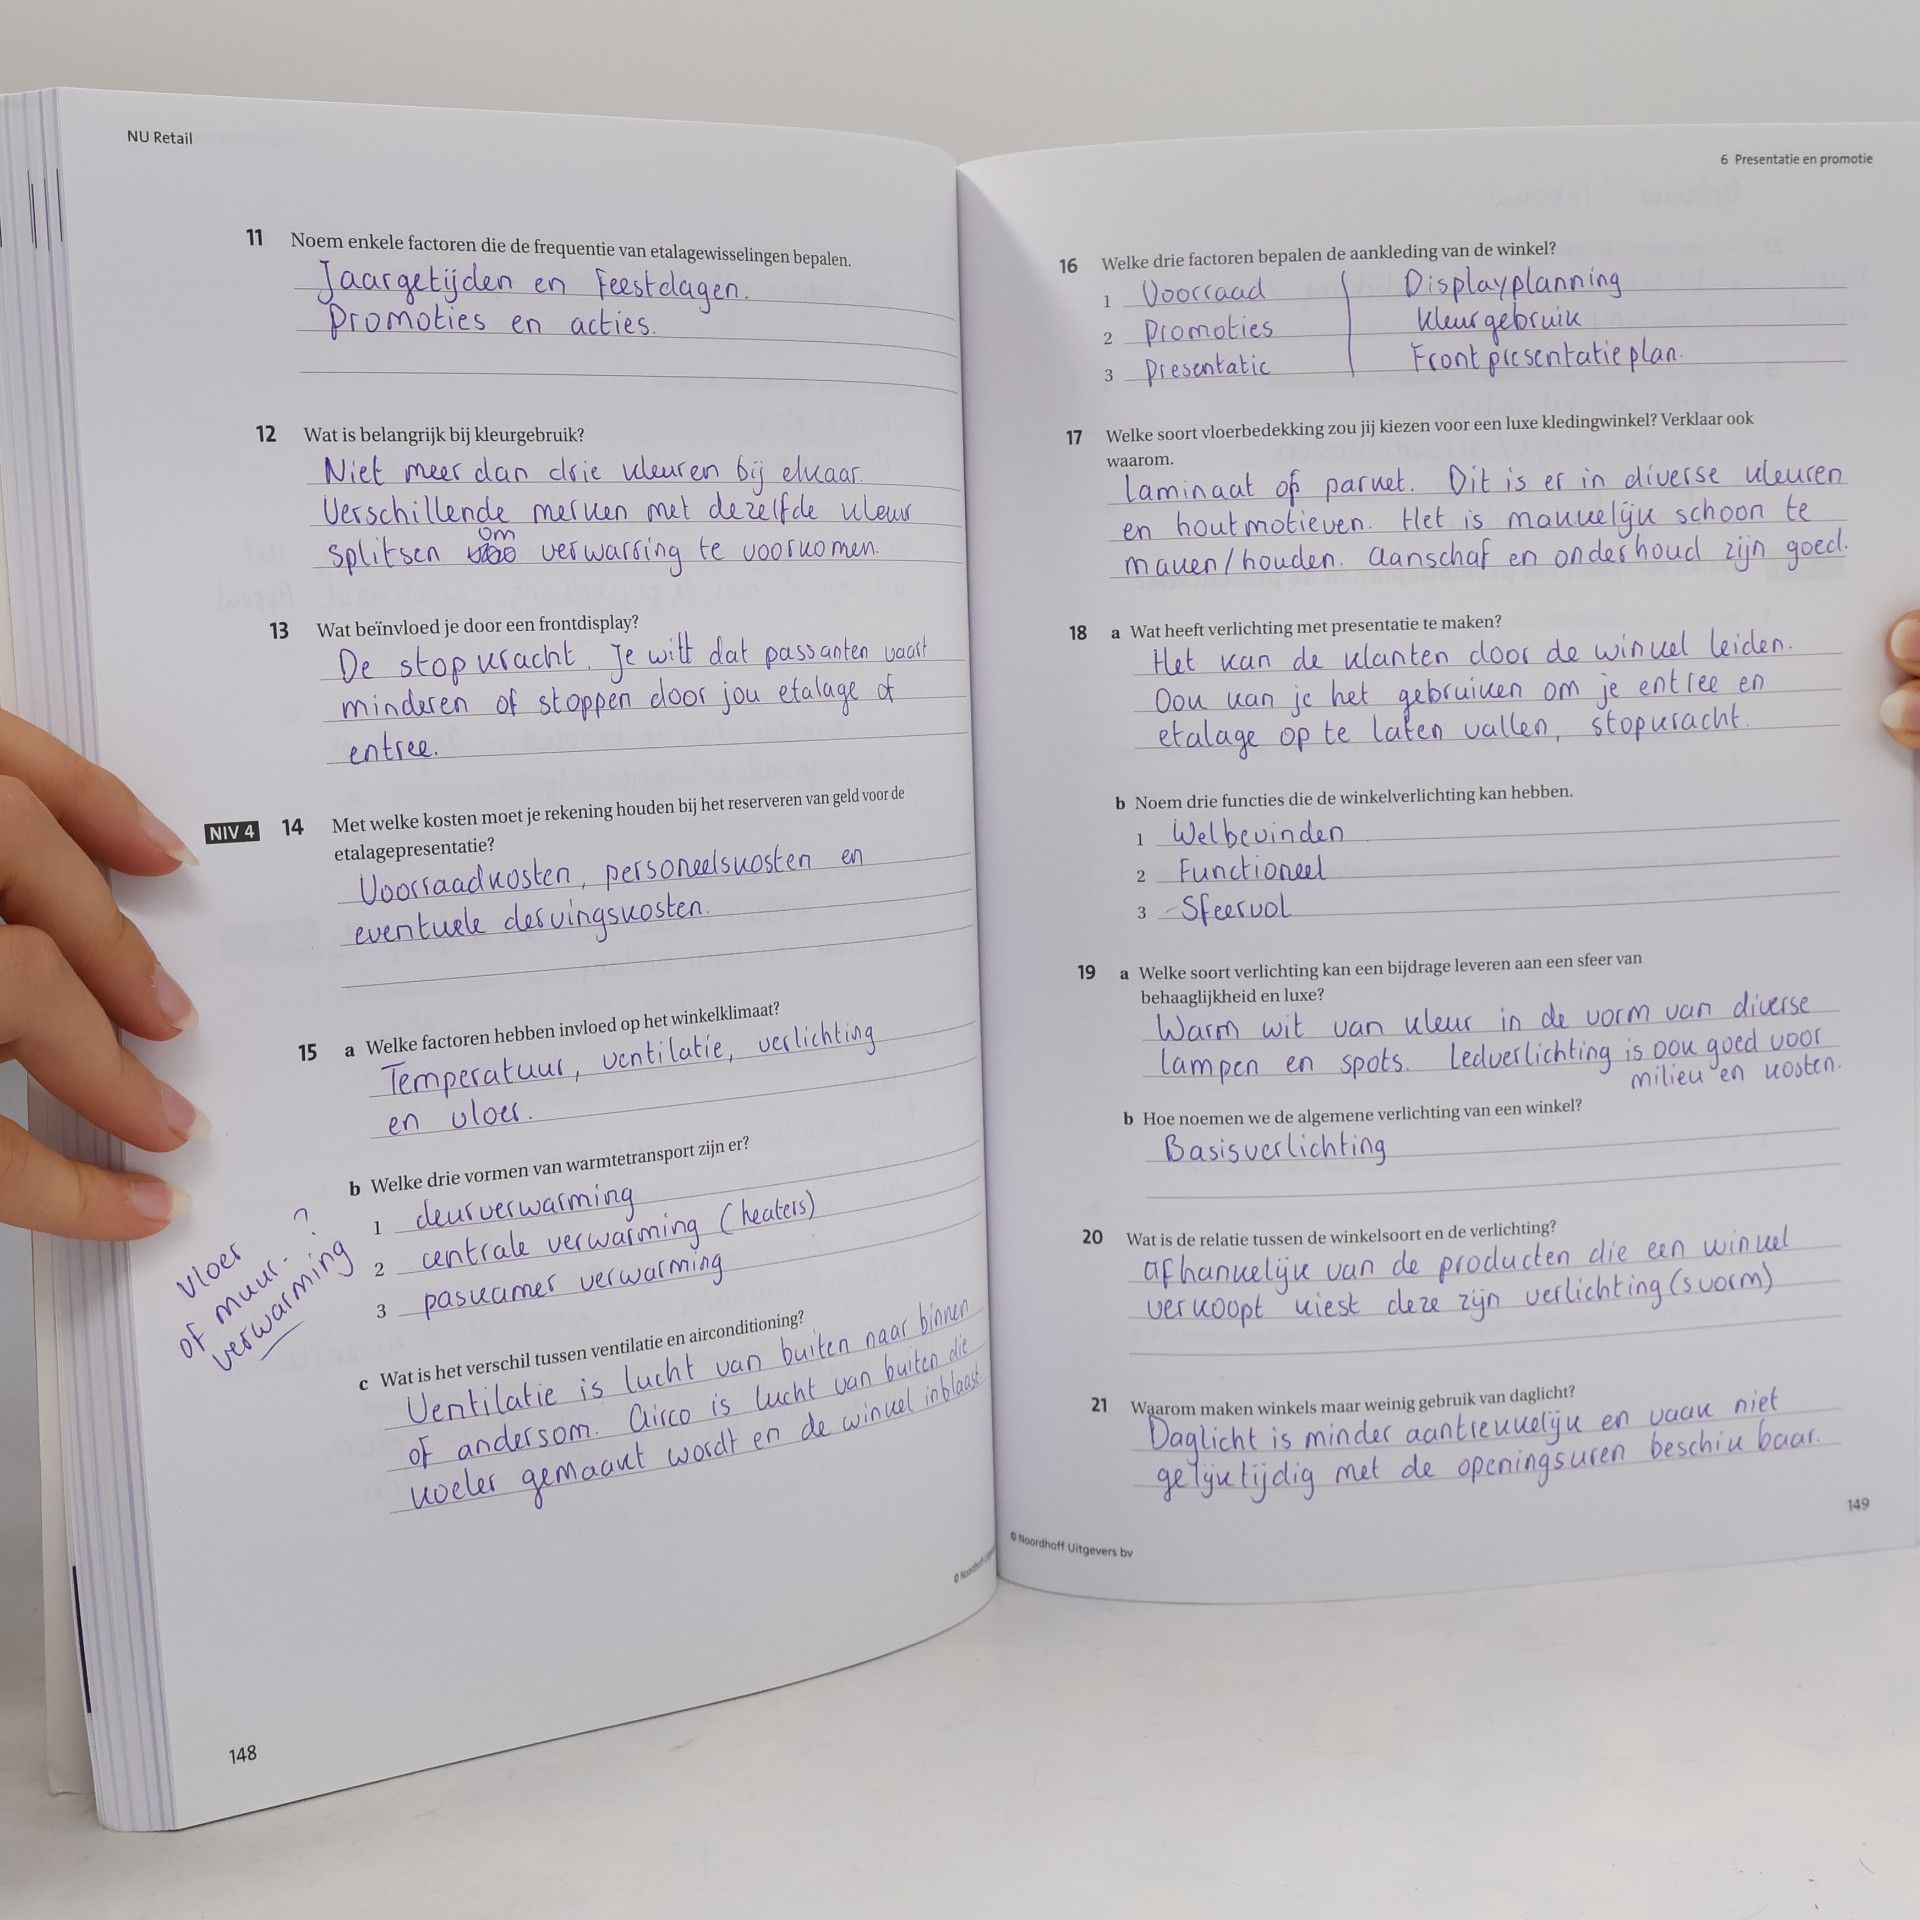 NU Retail
11 Noem enkele factoren die de frequentie van etalagewisselingen bepalen.
Jaargetijden en Feestdagen.
Promoties en acties.
12 Wat is belangrijk bij kleurgebruik?
Niet meer dan drie kleuren bij elkaar.
Verschillende merken met dezelfde kleur
om
splitsen verwarring te voorkomen.
13 Wat beïnvloed je door een frontdisplay?
De stopkracht. Je wilt dat passanten vaart
minderen of stoppen door jou etalage of
entree.
NIV 4 14 Met welke kosten moet je rekening houden bij het reserveren van geld voor de
etalagepresentatie?
Voorraadkosten, personeelskosten en
eventuele dervingskosten.
15 a Welke factoren hebben invloed op het winkelklimaat?
Temperatuur, ventilatie, verlichting
en vloer.
b Welke drie vormen van warmtetransport zijn er?
1 deurverwarming
2 centrale verwarming (heaters)
3 paskamer verwarming
vloer
of muur- ?
verwarming
c Wat is het verschil tussen ventilatie en airconditioning?
Ventilatie is lucht van buiten naar binnen
of andersom. Airco is lucht van buiten die
koeler gemaakt wordt en de winkel inblaast
148
© Noordhoff
6 Presentatie en promotie
16 Welke drie factoren bepalen de aankleding van de winkel?
1 Voorraad Displayplanning
2 Promoties Kleurgebruik
3 Presentatie Frontpresentatieplan.
17 Welke soort vloerbedekking zou jij kiezen voor een luxe kledingwinkel? Verklaar ook
waarom.
Laminaat of parket. Dit is er in diverse kleuren
en houtmotieven. Het is makkelijk schoon te
maken/houden. Aanschaf en onderhoud zijn goed.
18 a Wat heeft verlichting met presentatie te maken?
Het kan de klanten door de winkel leiden.
Ook kan je het gebruiken om je entree en
etalage op te laten vallen, stopkracht.
b Noem drie functies die de winkelverlichting kan hebben.
1 Welbevinden
2 Functioneel
3 Sfeervol
19 a Welke soort verlichting kan een bijdrage leveren aan een sfeer van
behaaglijkheid en luxe?
Warm wit van kleur in de vorm van diverse
lampen en spots. Ledverlichting is ook goed voor
milieu en kosten.
b Hoe noemen we de algemene verlichting van een winkel?
Basisverlichting
20 Wat is de relatie tussen de winkelsoort en de verlichting?
Afhankelijk van de producten die een winkel
verkoopt kiest deze zijn verlichting(svorm)
21 Waarom maken winkels maar weinig gebruik van daglicht?
Daglicht is minder aantrekkelijk en vaak niet
gelijktijdig met de openingsuren beschikbaar.
149
© Noordhoff Uitgevers bv